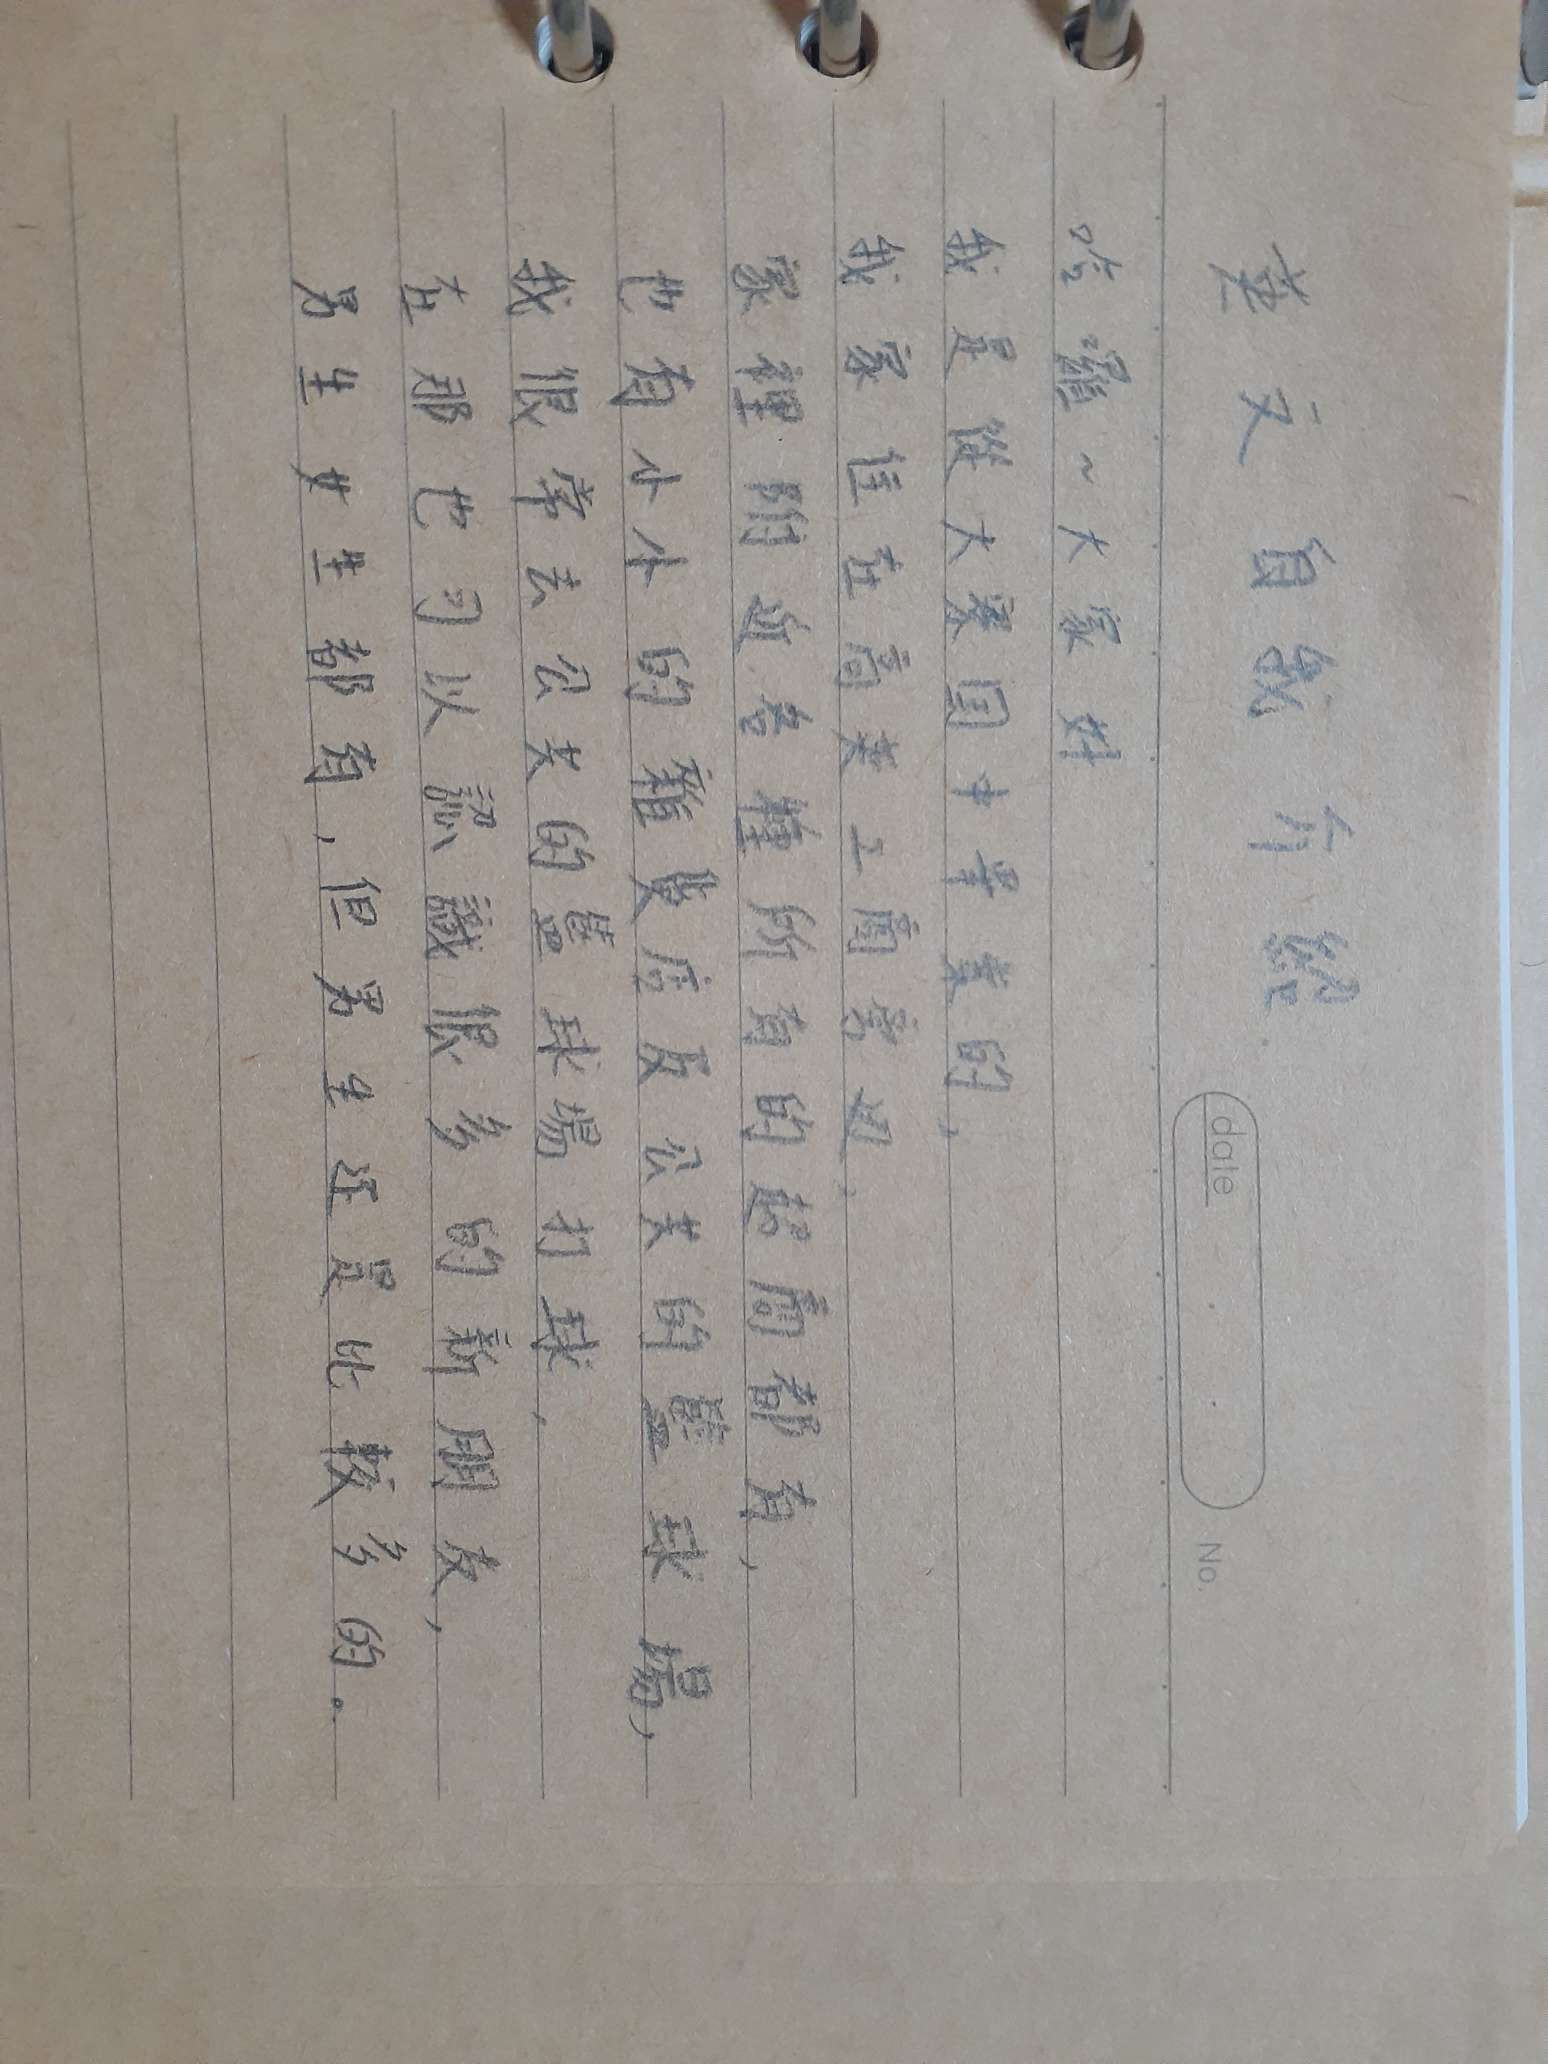 英文自我介紹
date
No.
哈囉~大家好
我是從大寮国中畢業的,
我家住在高英工商旁边,
家裡附近各種所有的超商都有,
也有小小的雜貨店及公共的籃球場,
我很常去公共的籃球場打球,
在那也可以認識很多的新朋友,
男生女生都有,但男生还是比較多的。